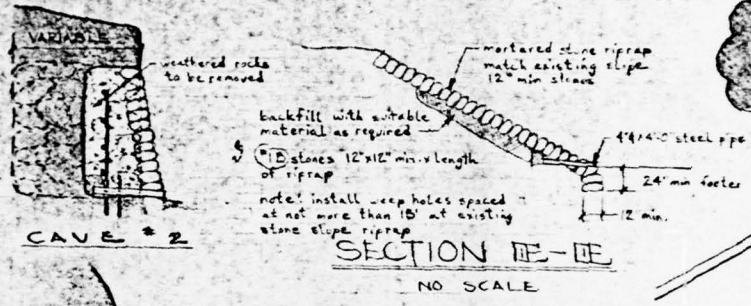 VARIABLE
weathered rocks
to be removed
CAVE #2
mortared stone riprap
match existing slope
12" min stones
backfill with suitable
material as required
stones 12"x12" min. x length
of riprap
note: install weep holes spaced
at not more than 15' at existing
stone slope riprap
steel pipe
24" min footer
12" min.
SECTION E-E
NO SCALE